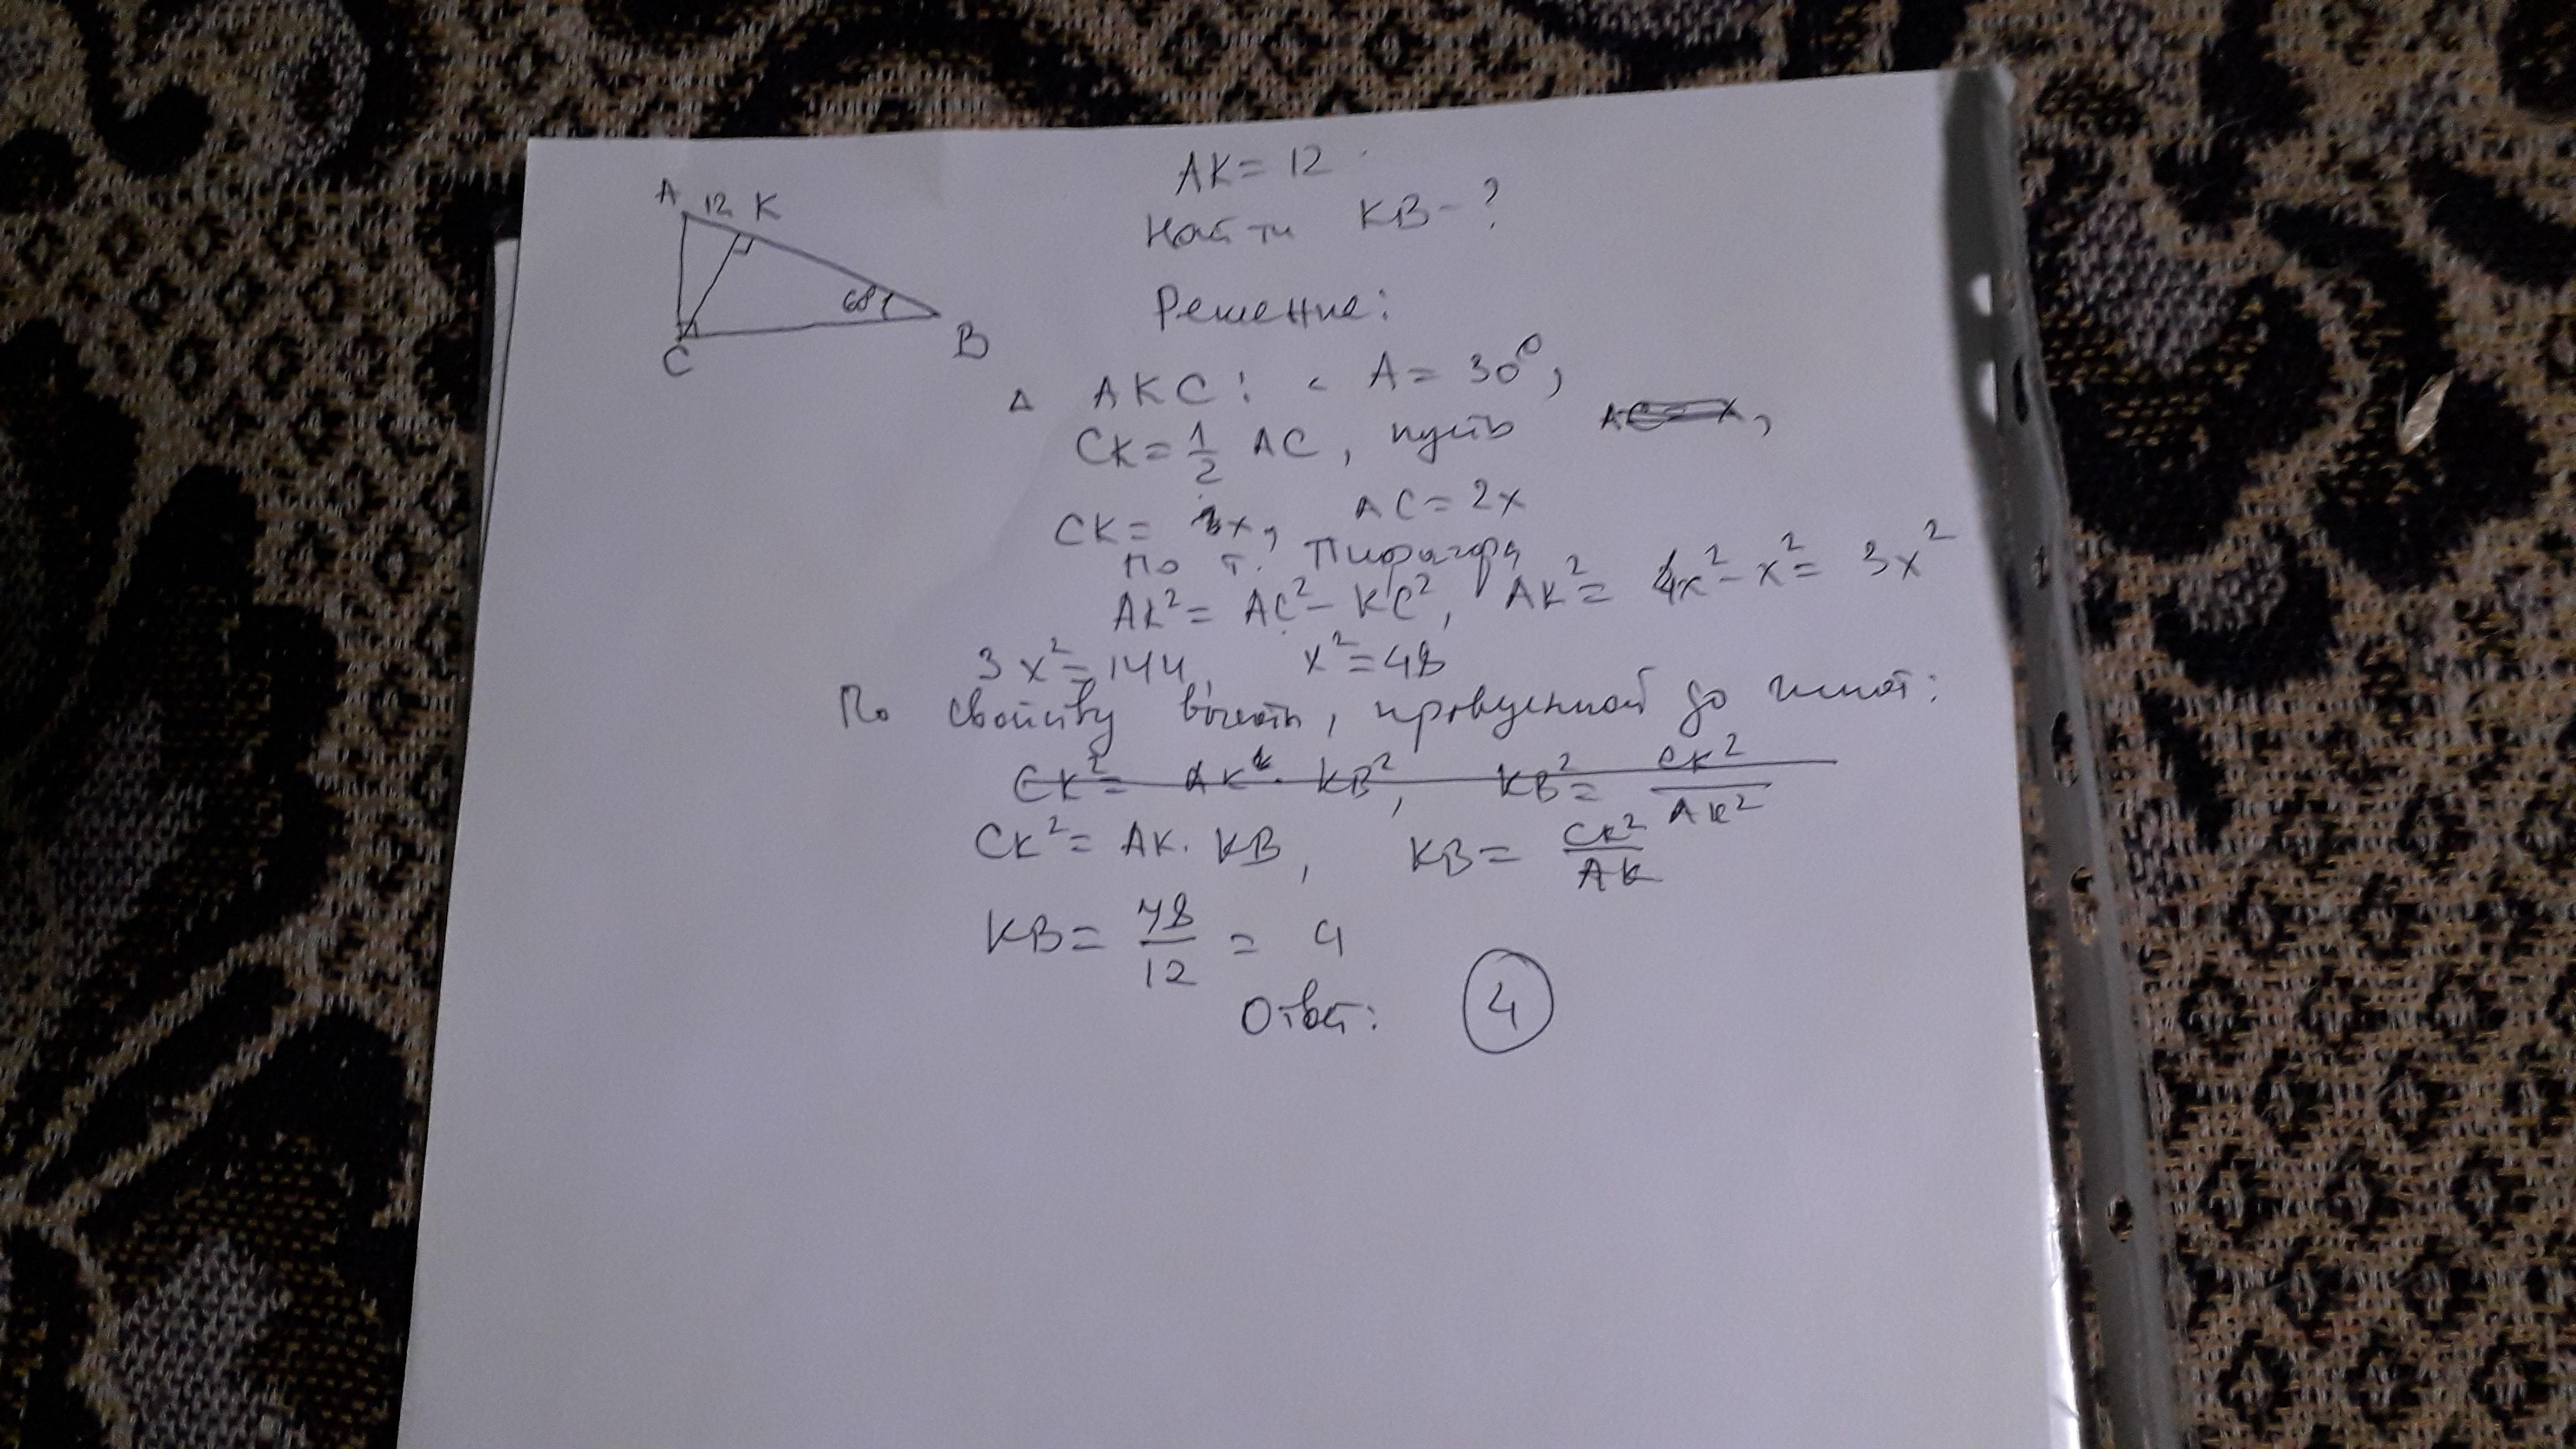 AK = 12
A 12 K
Найти KB - ?
60°
Решение:
C B
△ AKC: < A = 30°,
CK = 1/2 AC, пусть AC = x,
CK = x, AC = 2x
по т. Пифагора
AK² = AC² - KC², AK² = 4x² - x² = 3x²
3x² = 144, x² = 48
По свойству высоты, проведенной до гипот:
CK² = AK² · KB², KB² = CK²/AK²
CK² = AK · KB, KB = CK²/AK
KB = 48/12 = 4
Ответ: 4